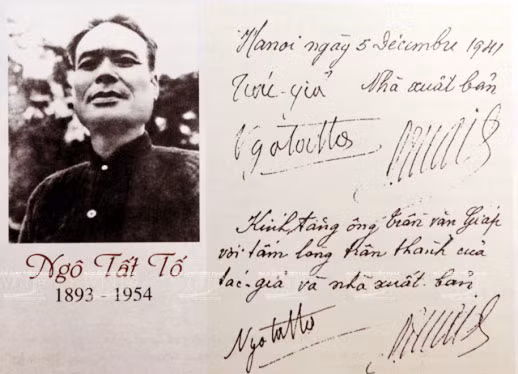 Ngô Tất Tố
1893 - 1954
Hanoi ngày 5 Décembre 1941
Tác-giả Nhà xuất bản
Ngotatto
Kính tặng ông Trần văn Giáp
với tấm lòng trân thành của
tác-giả và nhà xuất bản
Ngotatto